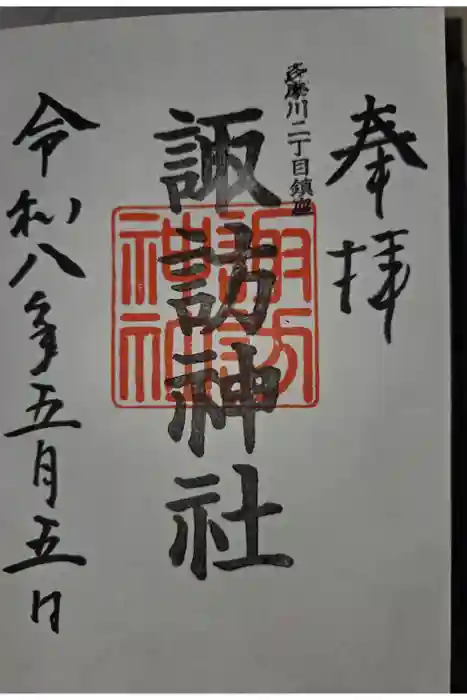 奉拝
多摩川二丁目鎮座
諏訪神社
諏訪
神社
令和八年五月五日